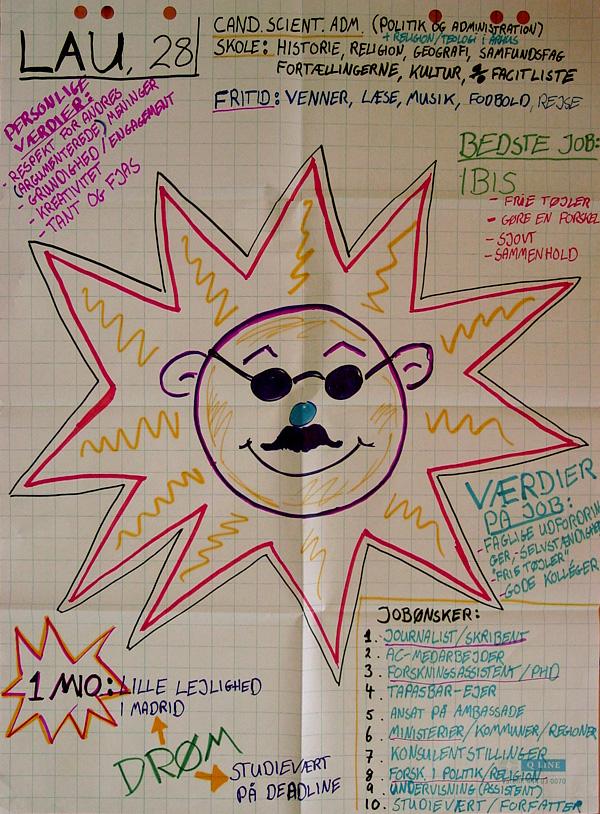 LAU, 28
CAND. SCIENT. ADM. (POLITIK OG ADMINISTRATION)
+ RELIGION/TEOLOGI I ÅRHUS
SKOLE: HISTORIE, RELIGION, GEOGRAFI, SAMFUNDSFAG
FORTÆLLINGERNE, KULTUR, FACITLISTE
FRITID: VENNER, LÆSE, MUSIK, FODBOLD, REJSE
PERSONLIGE
VÆRDIER:
- RESPEKT FOR ANDRES
(ARGUMENTEREDE) MENINGER
- GRUNDIGHED/ENGAGEMENT
- KREATIVITET
- TANT OG FJAS
BEDSTE JOB:
IBIS
- FRIE TØJLER
- GØRE EN FORSKEL
- SJOVT
- SAMMENHOLD
VÆRDIER
PÅ JOB:
- FAGLIGE UDFORDRIN
GER, - SELVSTÆNDIGHED
- "FRIE TØJLER"
- GODE KOLLEGER
JOBØNSKER:
1. JOURNALIST/SKRIBENT
2. AC-MEDARBEJDER
3. FORSKNINGSASSISTENT/PHD
4. TAPASBAR-EJER
5. ANSAT PÅ AMBASSADE
6. MINISTERIER/KOMMUNER/REGIONER
7. KONSULENTSTILLINGER
8. FORSK. I POLITIK/RELIGION
9. UNDERVISNING (ASSISTENT)
10. STUDIEVÆRT/FORFATTER
1 MIO: LILLE LEJLIGHED
I MADRID
DRØM
STUDIEVÆRT
PÅ DEADLINE
Q LINE